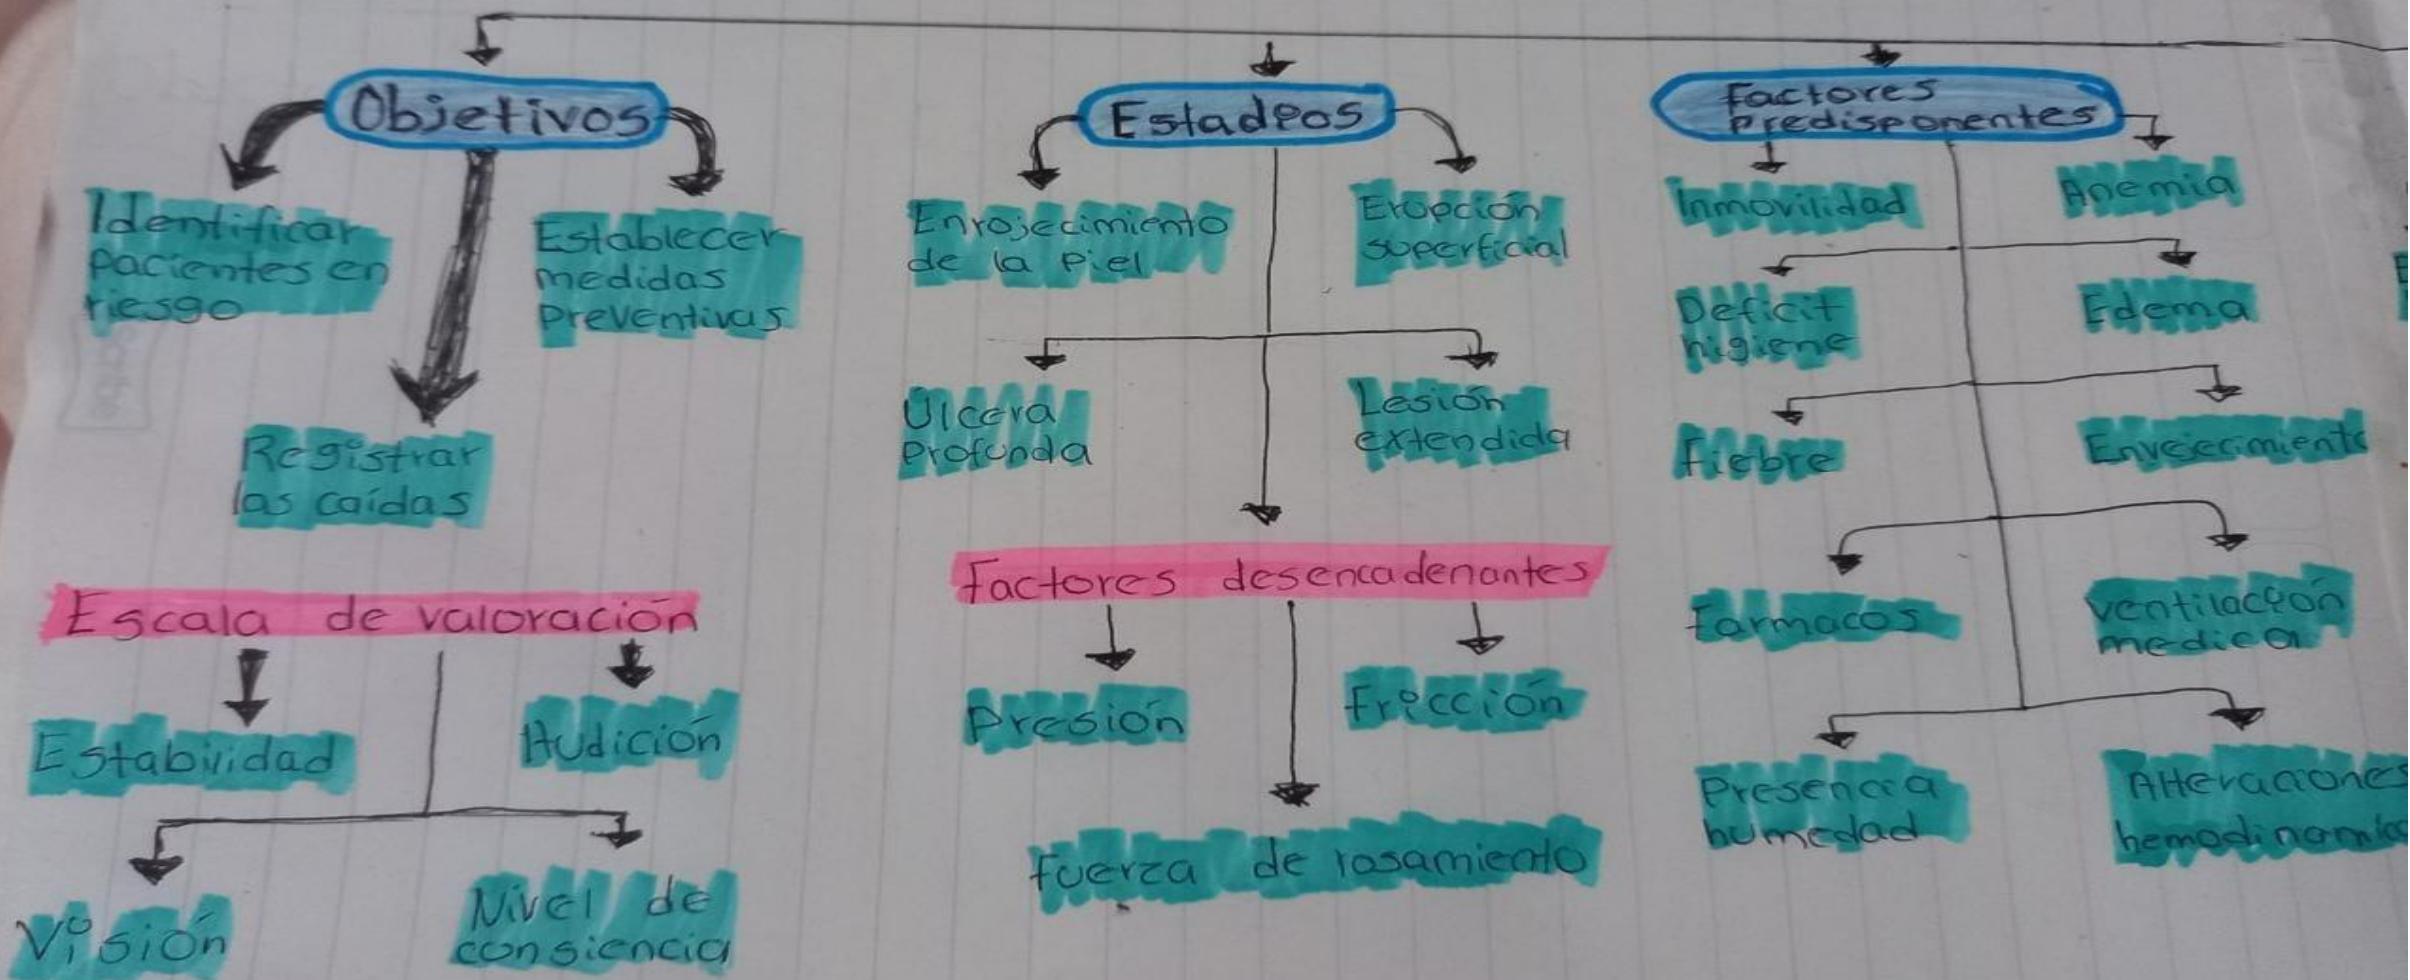 Objetivos
Identificar
pacientes en
riesgo
Establecer
medidas
preventivas
Registrar
las caídas
Escala de valoración
Estabilidad
Audición
Visión
Nivel de
consiencia
Estadios
Enrojecimiento
de la piel
Erupción
superficial
Ulcera
profunda
Lesión
extendida
Factores desencadenantes
Presión
Fricción
Fuerza de rosamiento
Factores
Predisponentes
Inmovilidad
Anemia
Deficit
higiene
Edema
Fiebre
Envejecimiento
Farmacos
Ventilación
medica
Presencia
humedad
Alteraciones